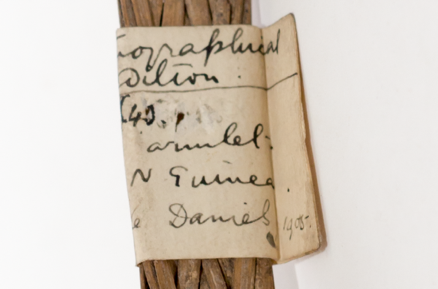 ographical
dition.
43.
armlet.
N Guinea
Daniels 1905.